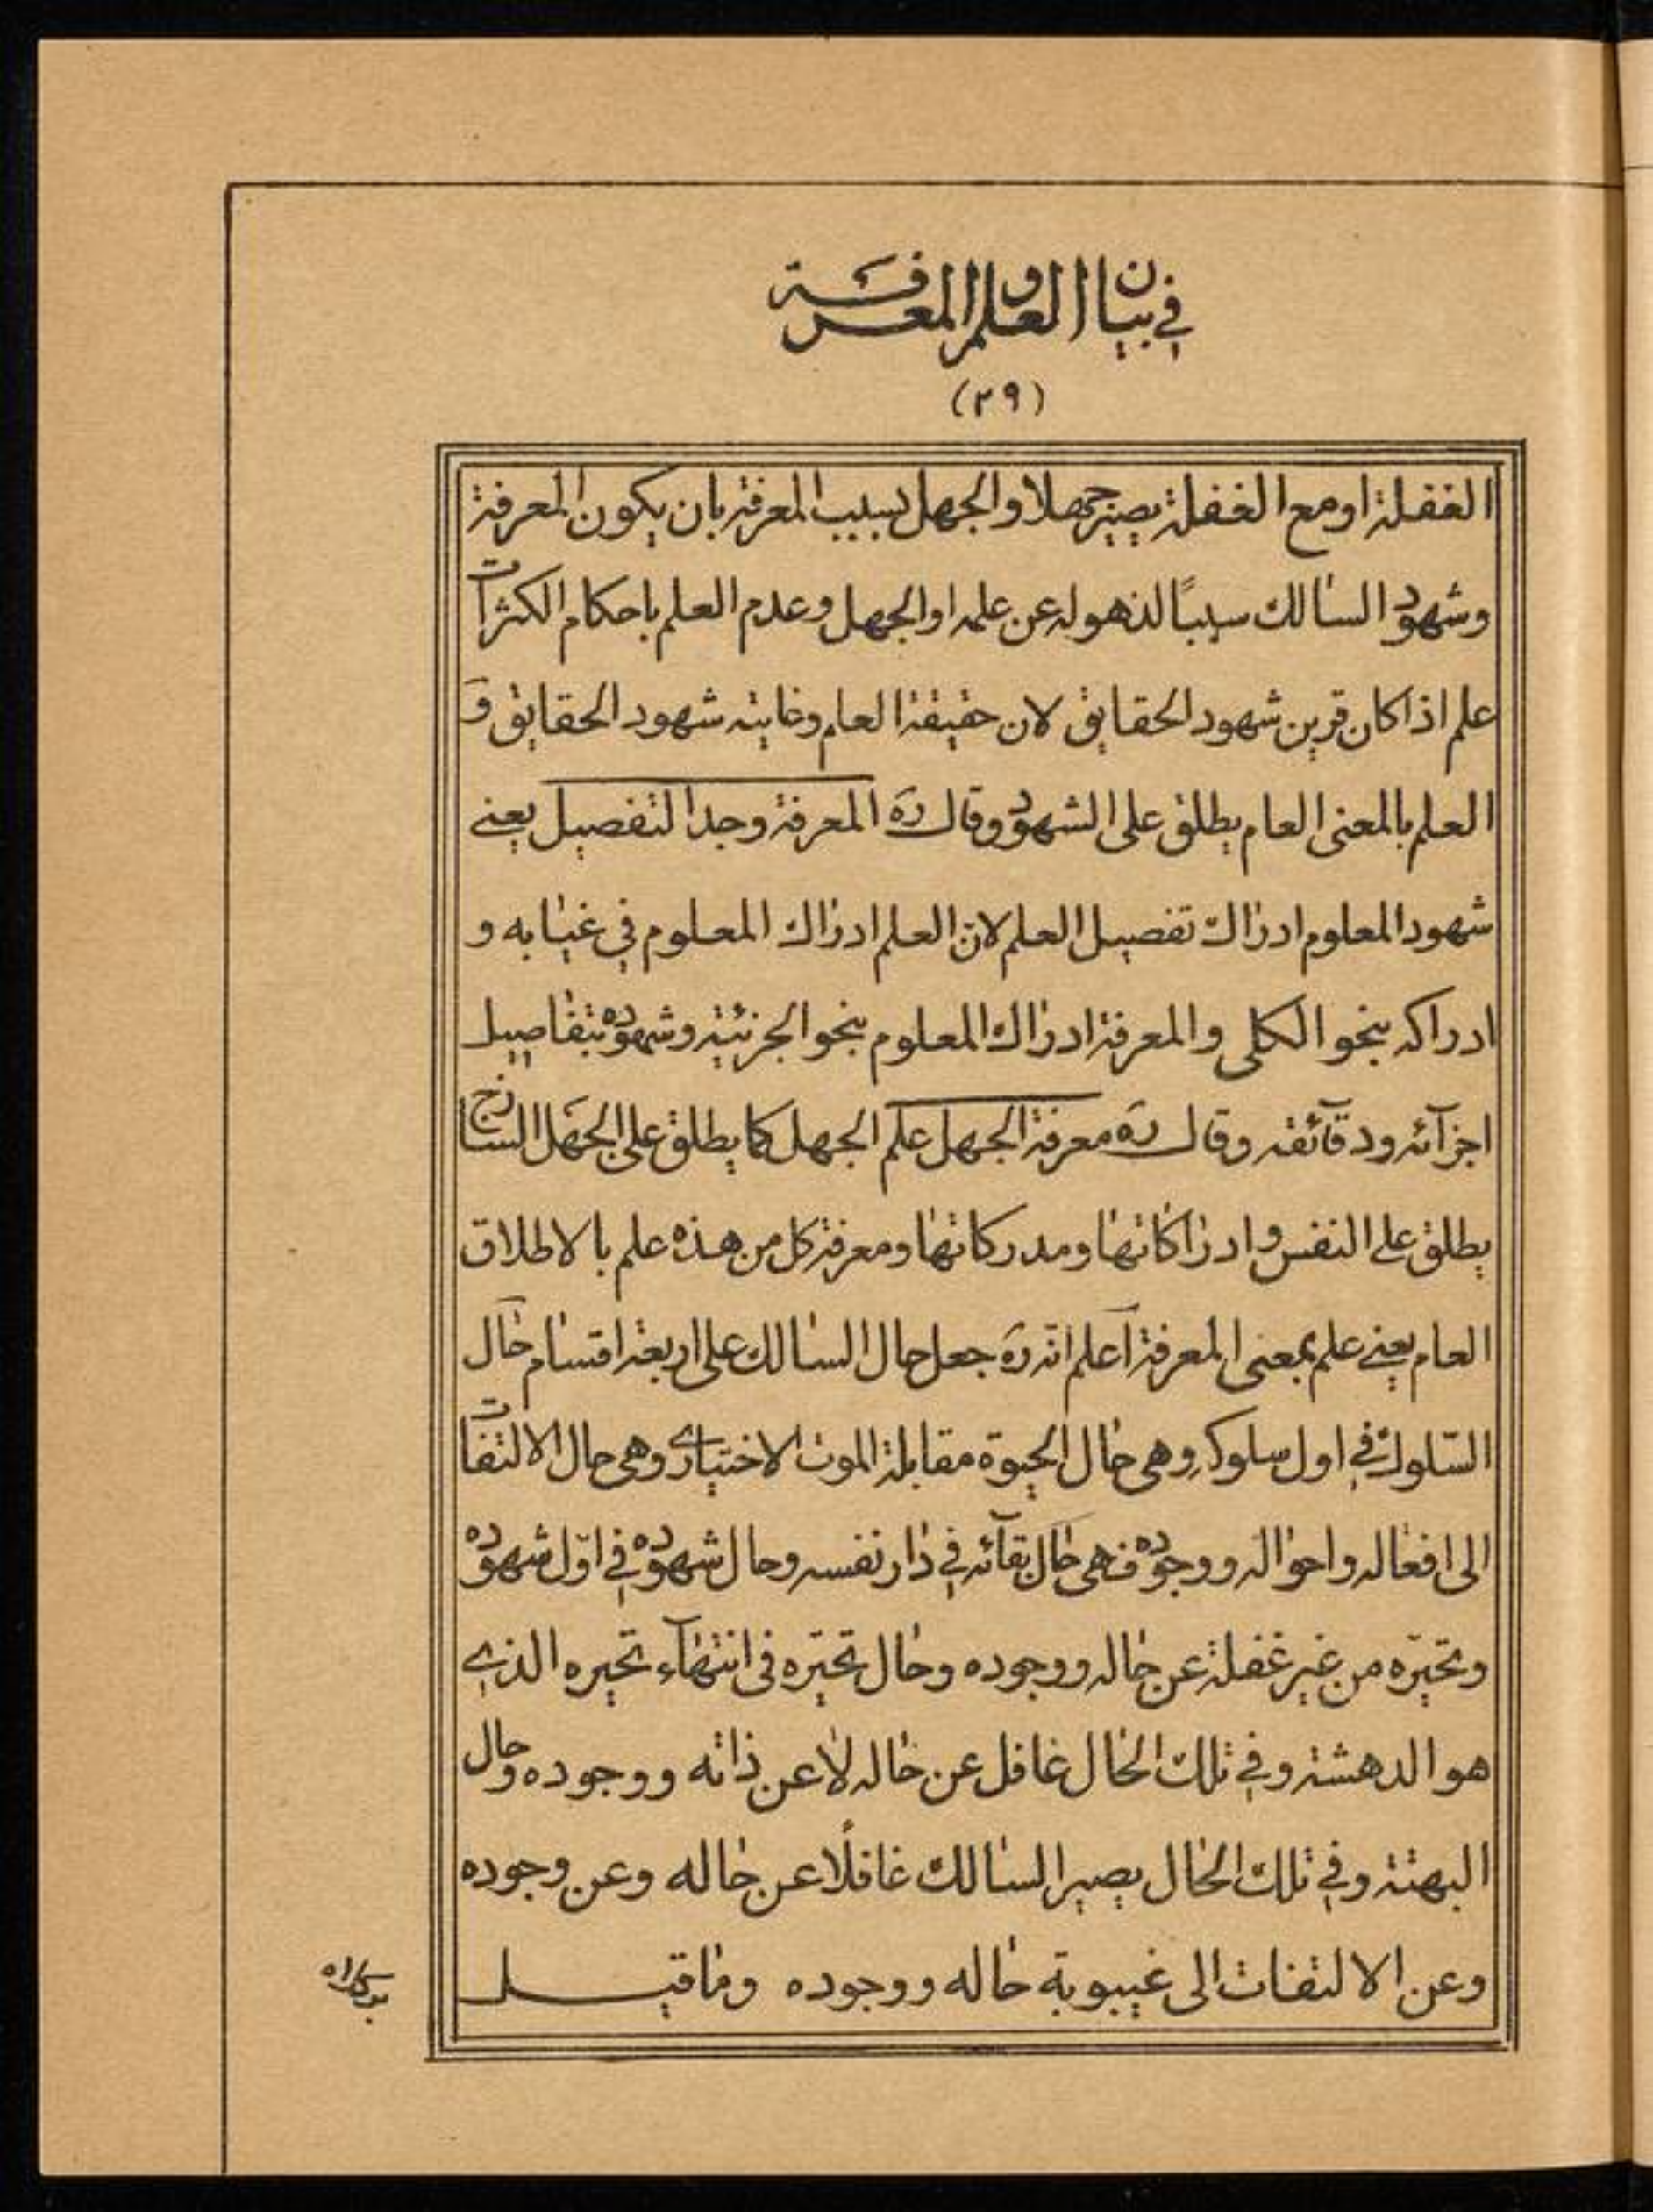 في بيان العلم والمعرفة
(٢٩)
الغفلة او مع الغفلة يصير جهلا والجهل بسبب المعرفة بان يكون المعرفة
وشهود السالك سببًا لذهوله عن علمه او الجهل وعدم العلم باحكام الكثرات
علم اذا كان قرين شهود الحقايق لان حقيقة العلم وغايته شهود الحقايق و
العلم بالمعنى العام يطلق على الشهود وقال ره المعرفة وجد التفصيل يعني
شهود المعلوم ادراك تفصيل العلم لان العلم ادراك المعلوم في غيابه و
ادراكه بنحو الكلى والمعرفة ادراك المعلوم بنحو الجزئية وشهوده بتفاصيل
اجزآئه ودقآئقه وقال ره معرفة الجهل علم الجهل كما يطلق على الجهل الساذج
يطلق على النفس وادراكاتها ومدركاتها ومعرفة كل من هذه علم بالاطلاق
العام يعني علم بمعنى المعرفة اعلم انّه ره جعل حال السالك على اربعة اقسام حال
السّلوك في اول سلوكه وهى حال الحيوة مقابلة الموت الاختياري وهى حال الالتفات
الى افعاله واحواله ووجوده فهى حال بقآئه في دار نفسه وحال شهوده في اوّل شهوده
وتحيّره من غير غفلة عن حاله ووجوده وحال تحيّره فى انتهآء تحيره الذي
هو الدهشة وفي تلك الحال غافل عن حاله لا عن ذاته ووجوده وحال
البهتة وفي تلك الحال يصير السالك غافلًا عن حاله وعن وجوده
وعن الالتفات الى غيبوبة حاله ووجوده وما قيل